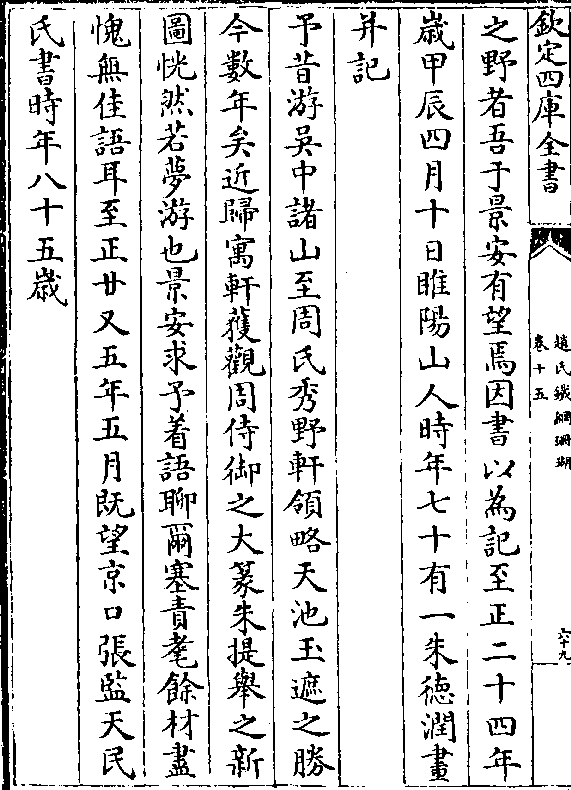 欽定四庫全書
趙氏鐵網珊瑚
卷十五
六十九
之野者吾于景安有望焉因書以為記至正二十四年
歲甲辰四月十日睢陽山人時年七十有一朱德潤畫
并記
予昔游吳中諸山至周氏秀野軒領略天池玉遮之勝
今數年矣近歸寓軒蒦觀周侍御之大篆朱提舉之新
圖恍然若夢游也景安求予着語聊爾塞責耄餘材盡
愧無佳語耳至正廿又五年五月既望京口張監天民
氏書時年八十五歲